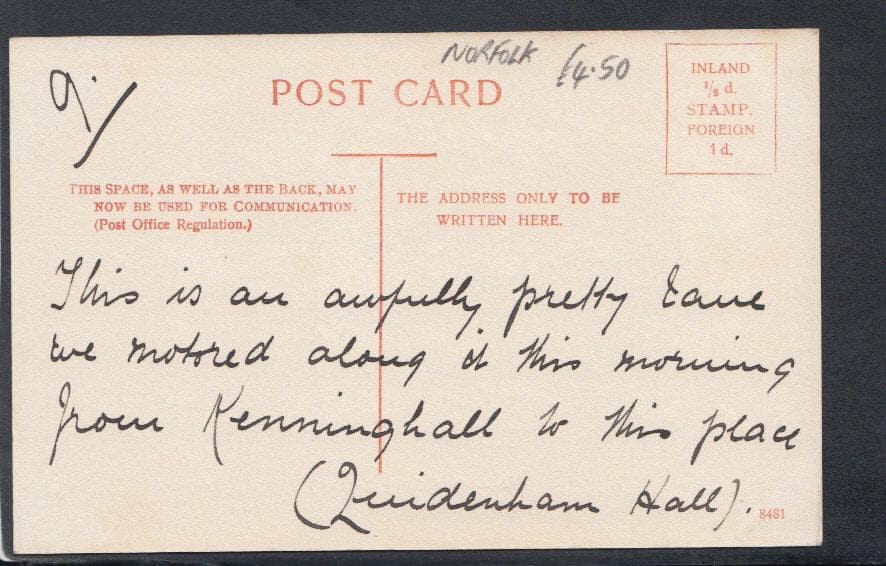 NORFOLK £4.50
9./
POST CARD
INLAND
½ d.
STAMP.
FOREIGN
1 d.
THIS SPACE, AS WELL AS THE BACK, MAY
NOW BE USED FOR COMMUNICATION.
(Post Office Regulation.)
THE ADDRESS ONLY TO BE
WRITTEN HERE.
This is an awfully pretty Lane
we motored along it this morning
from Kenninghall to this place
(Quidenham Hall).
8481